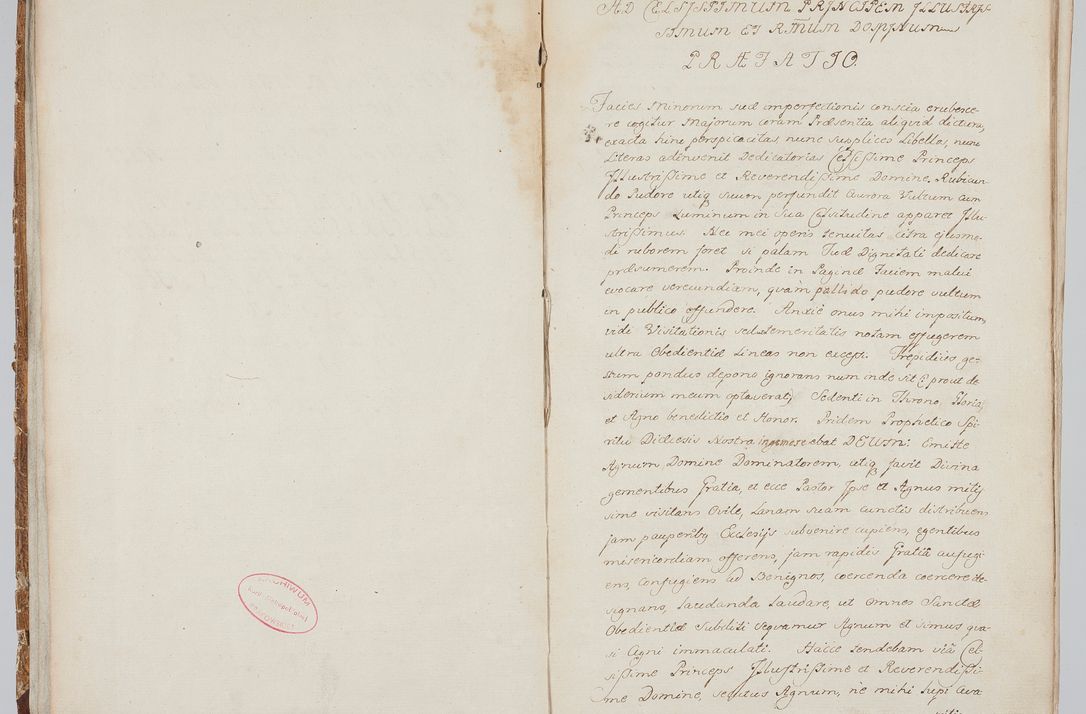 AD CELSISSIMUM PRINCIPEM ILLUSTRIS
SIMUM ET RMUM DOMINUM
PRÆFATIO.
Facies Minorum suæ imperfectionis conscia erubesce-
re cogitur Majorum coram Præsentia aliquid dictura,
exacta hinc perspicacitas, nunc supplices Libellos, nunc
Literas adinvenit Dedicatorias Celsissime Princeps
Illustrissime et Reverendissime Domine. Rubicun-
do Pudore utiq suum perfundit Aurora Vultum cum
Princeps Luminum in sua Celsitudine apparet Illu-
strissimus. Nec mei operis tenuitas citra ejusmo-
di ruborem foret si palam Tuæ Dignitati dedicare
præsumerem. Proinde in Paginæ Faciem malui
evocare verecundiam, quam pallido pudore vultum
in publico offundere. Anxie onus mihi impositum,
vidi Visitationis sed temeritatis notam effugerem
ultra Obedientiæ Lineas non excessi. Trepidus ges-
tum pondus depono ignorans num inde sit prout de
siderium meum optaverat Sedenti in Throno, Gloria,
et Agno benedictio et Honor. Pridem Prophetico Spi
ritu Diœcesis Nostra ingemescebat DEUM: Emitte
Agnum Domine Dominatorem, utiq favit Divina
gementibus Gratia, et ecce Pastor Ipse et Agnus mitis
sime visitans Ovile, Lanam suam cunctis distribuens
jam pauperibq Ecclesijs subvenire cupiens, egentibus
misericordiam offerens, jam rapidis Gratia aufugi
ens, Confugiens ad Benignos, coercenda coercere de
signans, Laudanda Laudare, ut omnes Sanctæ
Obedientiæ Subditi sequamur Agnum et simus qua
si Agni immaculati. Hacce tendebam viâ Cel-
sissime Princeps Illustrissime et Reverendissi-
me Domine, secutus Agnum, ne mihi Lupi Ava
ritia
ARCHIWUM